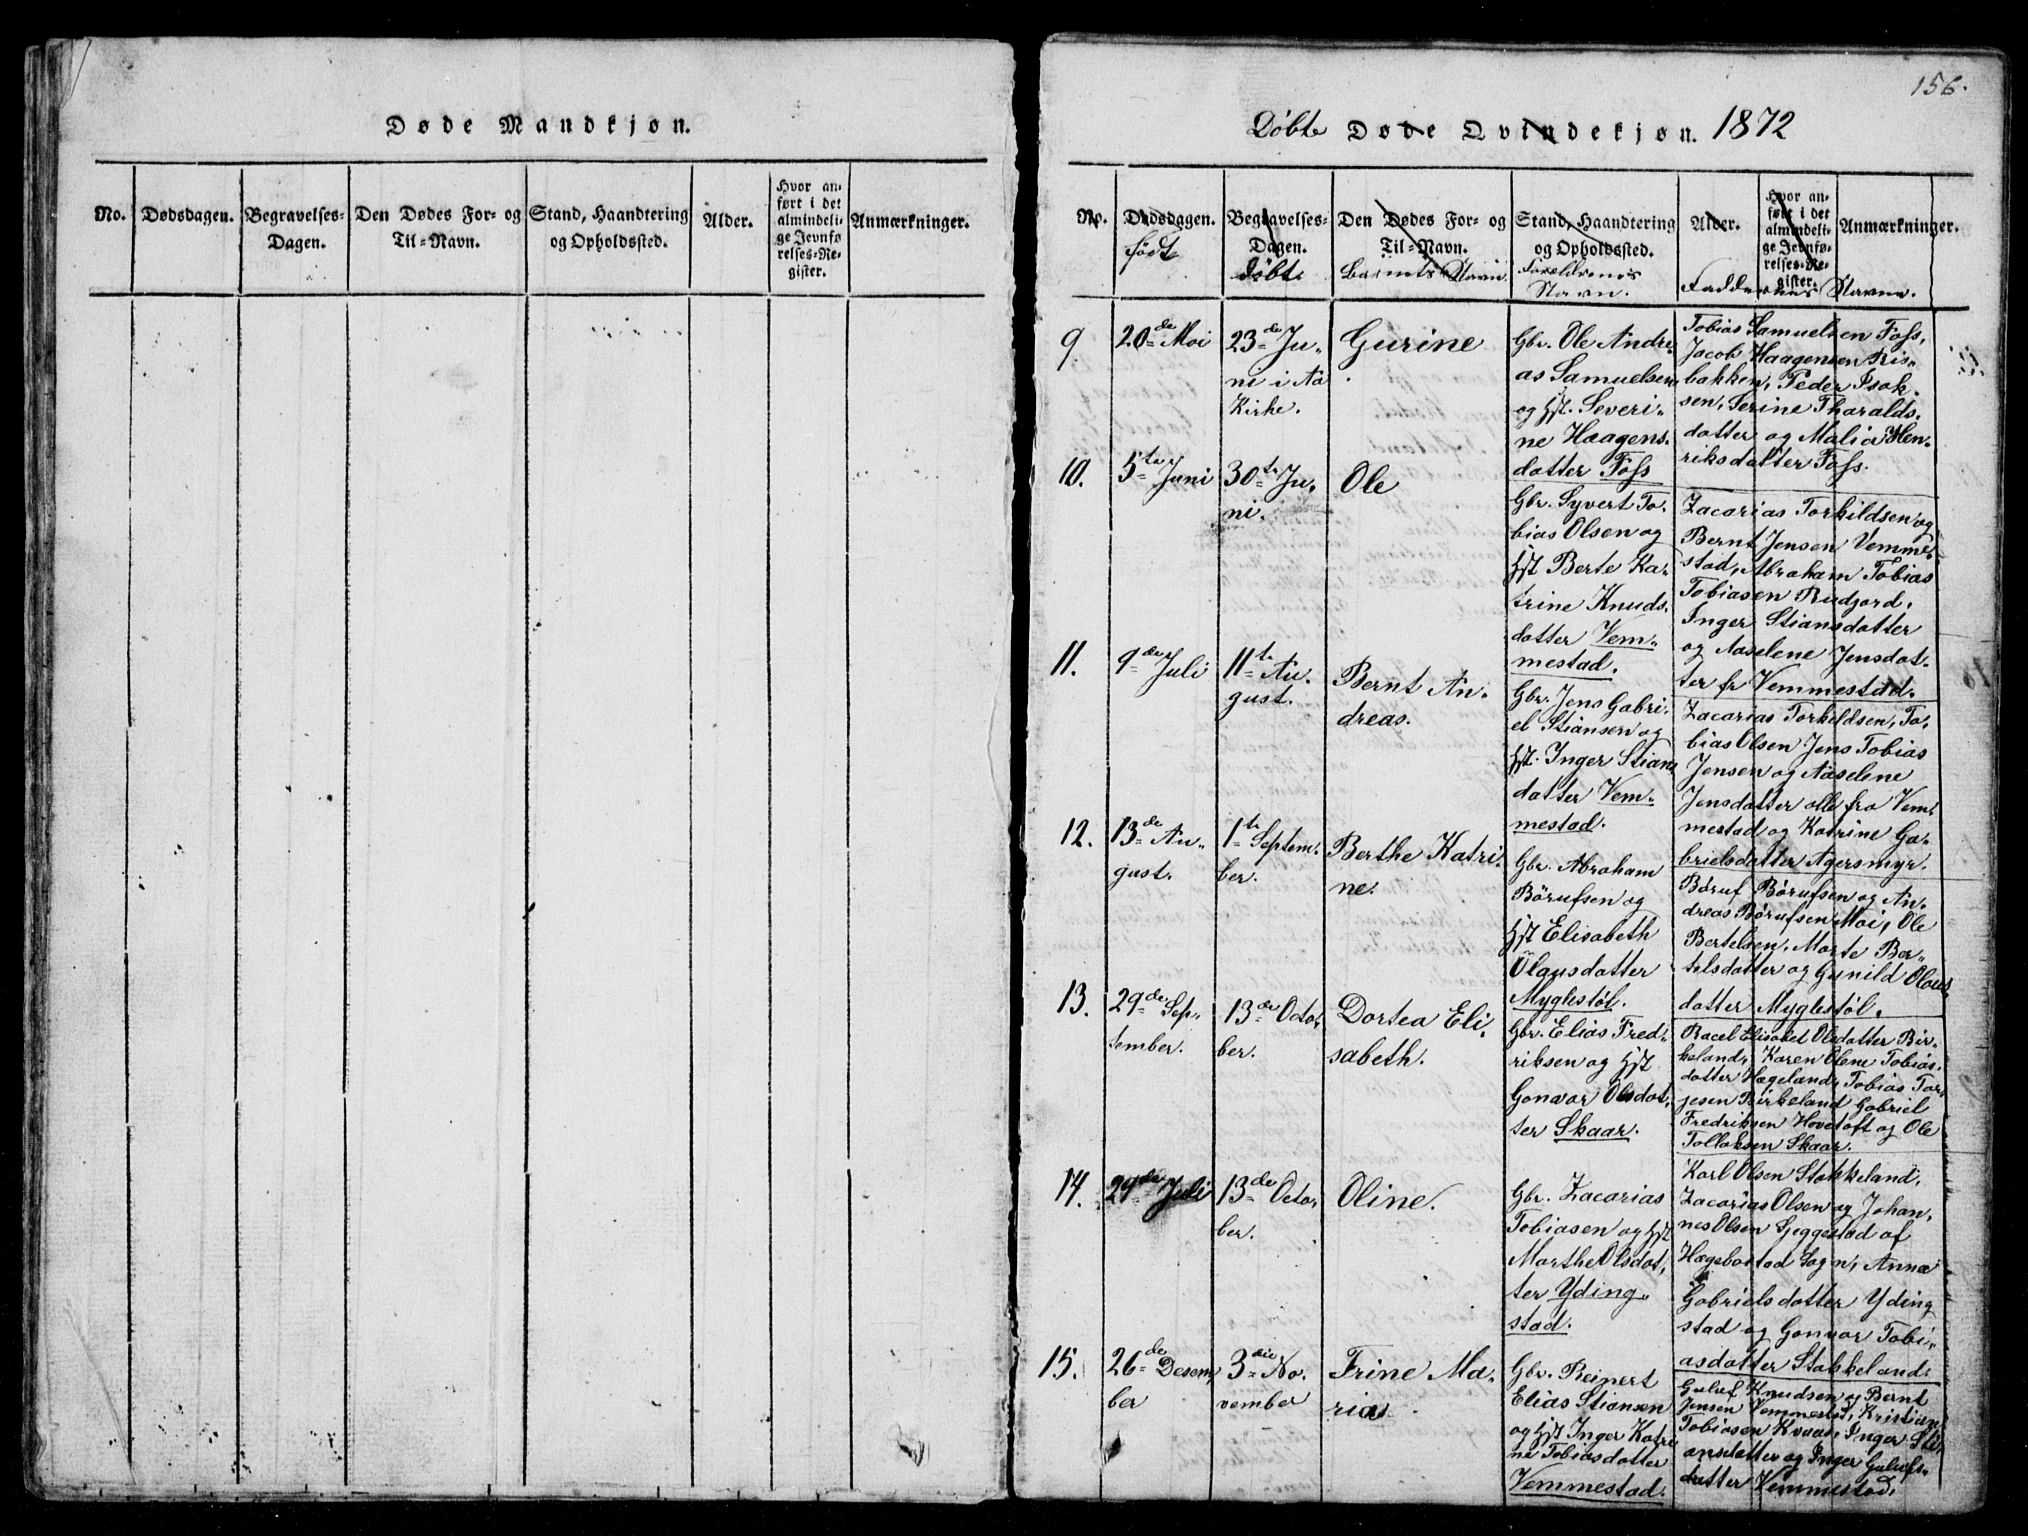 Døde Mandkjøn.
No.
Dødsdagen.
Begravelses-
Dagen.
Den Dødes For- og
Til-Navn.
Stand, Haandtering
og Opholdssted.
Alder.
Hvor an-
ført i det
almindeli-
ge Jevnfø
relses-Re-
gister.
Anmærkninger.
156.
Døbte Døde Qvindekjøn. 1872
No.
Dødsdagen.
født
Begravelses-
Dagen.
døbt
Den Dødes For- og
Til-Navn.
Barnets Navn
Stand, Haandtering
og Opholdssted.
Forældrenes
Navn.
Alder.
Hvor an-
ført i det
almindeli-
ge Jevnfø-
relses-Re-
gister.
Anmærkninger.
Faddernes Navne.
9.
20de Moi
23de Ju-
ni i Aa
Kirke.
Gurine
Gbr. Ole Andre
as Samuelsen
og Hst. Severi-
ne Haagens-
datter Foss
Tobias Samuelsen Foss,
Jacob Haagensen Ris-
bakken, Peder Isak-
sen, Serine Tharalds-
datter og Malia Hen-
riksdatter Foss.
10.
5te Juni
30te Ju-
ni.
Ole
Gbr. Syvert To-
bias Olsen og
Hst Berte Ka-
trine Knuds-
datter Vem-
mestad.
Zacarias Torkildsen og
Bernt Jensen Vemme-
stad, Abraham Tobias
Tobiasen Rudjord,
Inger Stiansdatter
og Aaselene Jensdat-
ter fr Vemmestad.
11.
9de Juli
11te Au-
gust.
Bernt An-
dreas.
Gbr. Jens Gabri-
el Stiansen og
Hst. Inger Stians
datter Vem-
mestad.
Zacarias Torkildsen, To-
bias Olsen Jens Tobias
Jensen og Aaselene
Jensdatter alle fra Vem-
mestad og Katrine Ga-
brielsdatter Agersmyr.
12.
13de Au-
gust.
1te Septem-
ber.
Berthe Katri-
ne.
Gbr. Abraham
Börufsen og
Hst Elisabeth
Olausdatter
Myglestøl.
Børuf Børufsen og An-
dreas Børufsen Moi, Ole
Bertelsen, Marte Ber-
telsdatter og Gunild Olaus-
datter Myglestøl.
13.
29de Sep-
tember.
13de Octo-
ber.
Dortea Eli-
sabeth.
Gbr. Elias Fred-
riksen og Hst
Gonvor Olsdat-
ter Skaar.
Racel Elisabet Olsdatter Bir-
keland, Karen Olene Tobias-
datter Hægeland, Tobias Tor-
jesen Birkeland Gabriel
Fredriksen Hovetoft og Ole
Tollaksen Skaar.
14.
29de Juli
13de Octo-
ber.
Oline.
Gbr. Zacarias
Tobiasen og Hst
Marthe Olsdat-
ter Yding-
stad.
Karl Olsen Stokkeland,
Zacarias Olsen og Johan-
nes Olsen Sjeggestad af
Hægebostad Sogn, Anna
Gabrielsdatter Yding
stad og Gonvor Tobi-
asdatter Stokkeland.
15.
26de Desem-
ber
3die No-
vember
Trine Ma-
rias.
Gbr. Reinert
Elias Stiansen
og Hst Inger Katri
ne Tobiasdatter
Vemmestad.
Guluf Knudsen og Bernt
Jensen Vemmestad, Kristian
Tobiasen Kvaas, Inger Sti-
ansdatter og Inger Gulufs-
datter Vemmestad.